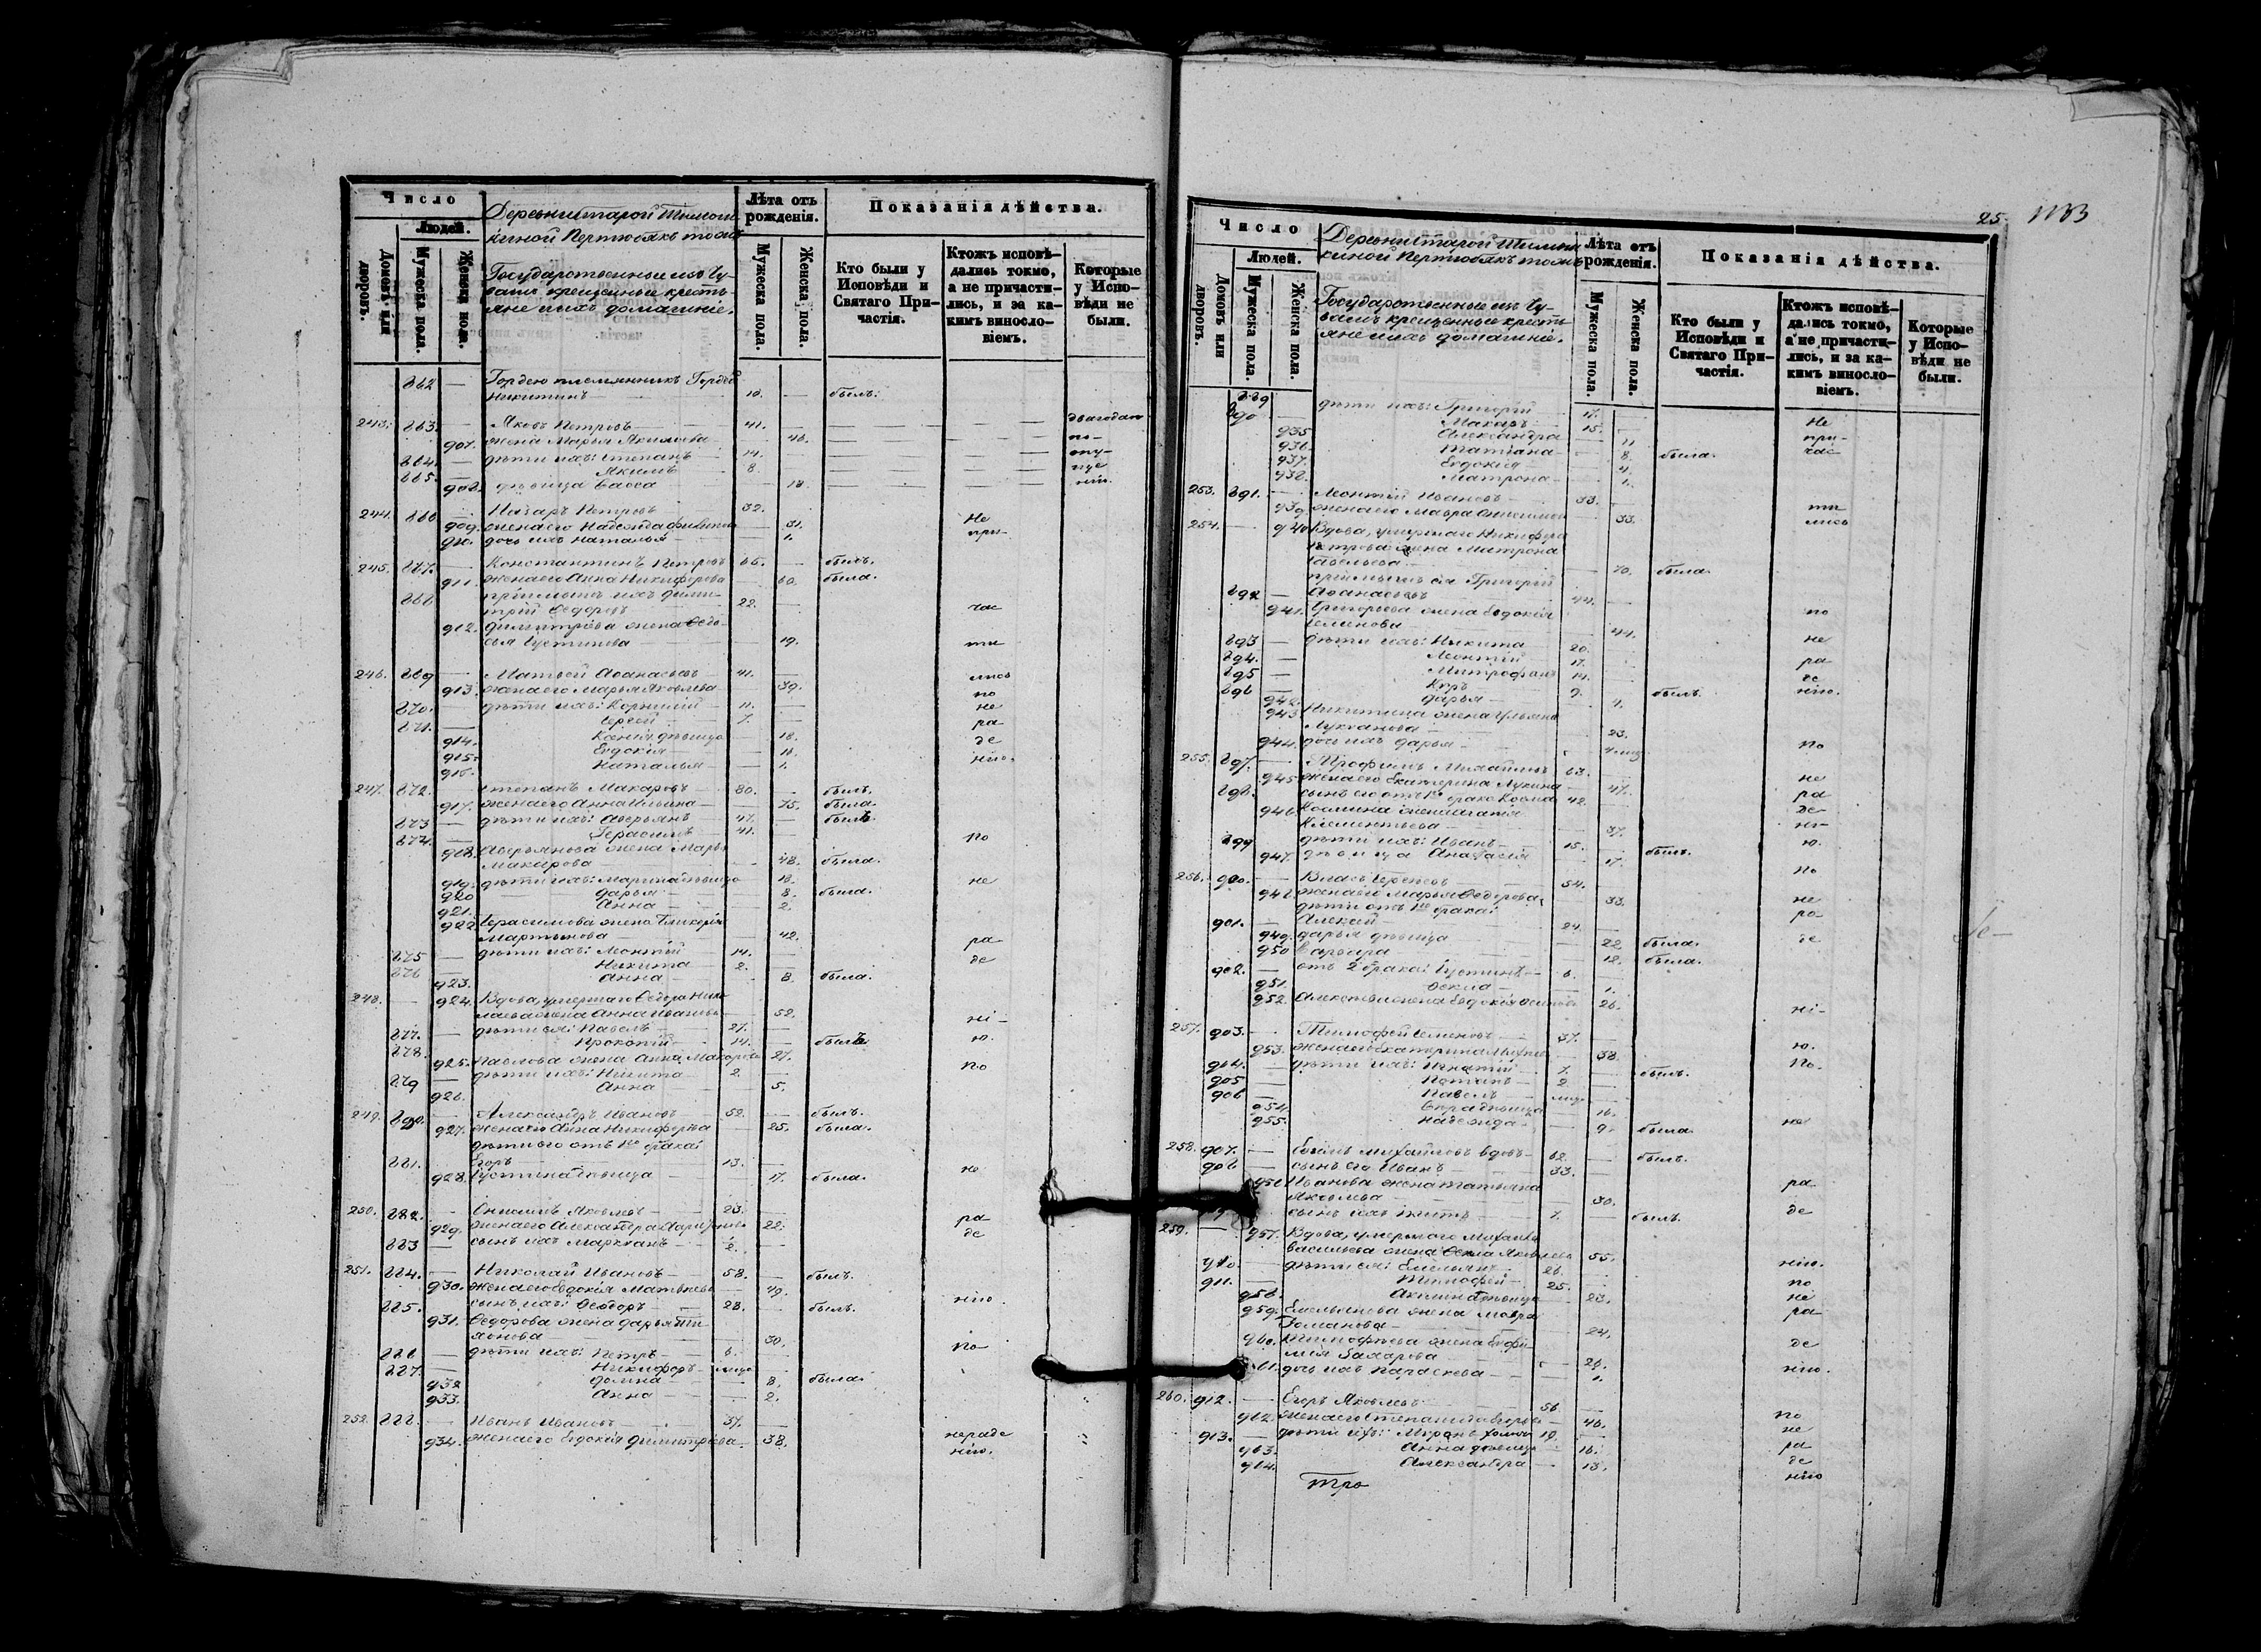 Число
Людей.
Домовъ или дворовъ.
Мужеска пола.
Женска пола.
Деревни Старой Тимош-
киной Пертюбякъ тожъ
Государственные изъ Чу-
вашъ крещенные кресть-
яне и ихъ домашніе.
Лѣта отъ рожденія.
Мужеска пола.
Женска пола.
Показанія дѣйства.
Кто были у Исповѣди и Святаго При-частія.
Ктожъ исповѣ-дались токмо, а не причасти-лись, и за ка-кимъ винословіемъ.
Которые у Испо-вѣди не были.
862 — Гордею племянникъ Гордей
Никитинъ 10. — былъ.
243. 863. — Яковъ Петровъ 41.
907. жена Марья Акимова 46. по-
864. — дѣти ихъ: Степанъ 14.
865. — Якимъ 8.
908. дѣвица Васса 18.
244. 866 — Назаръ Петровъ 32. Не
909. жена его Надежда 31. при-
910. дочь ихъ Наталья 1.
245. 867. — Константинъ Петровъ 65. — былъ.
911. жена его Анна Никифорова 60. была.
868 пріемышъ ихъ Дими-
трій Ѳедоровъ 22. — час
912. Димитріева жена Ѳедо-
сья Густинова 19. ти
246. 869 — Матвей Аѳанасьевъ 41. лись
913. жена его Марья Яковлева 39. по
870. — дѣти ихъ: Корнилій 11. не
871. — Сергей 7. ра
914. Ксенія дѣвица 18. де
915. Евдокія 11. нію.
916. Наталья 1.
247. 872. — Степанъ Макаровъ 80. — былъ.
917. жена его Анна Ильина 75. была.
873 — дѣти ихъ: Аверьянъ 47. — былъ
874. — Герасимъ 41. По
918. Аверьянова жена Марья
Макарова 48. была.
919. дѣти ихъ: Марина дѣвица 18. не
920 Дарья 8. была.
921. Анна 2.
922 Герасимова жена Гликерія
Мартынова 42. ра
875 — дѣти ихъ: Леонтій 14. — де
876 — Никита 2.
923. Анна 8. была.
248. — 924. Вдова, умершаго Ѳедора Нико-
лаева жена Анна Иванова 52. ні-
877. — дѣти ея: Павелъ 27. — ю.
878. Прокопій 14. — былъ
925. Павлова жена Анна Макарова 27.
879 — дѣти ихъ: Никита 2. — По
926. Анна 5.
249. 880. — Александръ Ивановъ 52. — былъ.
927. жена его Анна Никифорова 25. была.
дѣти его отъ 1го брака:
881. Егоръ 13.
928. Густина дѣвица 17. была. не
250. 882. — Онисимъ Яковлевъ 23. — ра
929. жена его Александра 22. де
883 — сынъ ихъ Маркіанъ 2.
251. 884. — Николай Ивановъ 58. — былъ.
930. жена его Евдокія Матвѣева 49.
885. — сынъ ихъ: Ѳеодоръ 28. — былъ. нію.
931. Ѳедорова жена Дарья Ти-
хонова 30. По
886 — дѣти ихъ: Петръ 6.
887. — Никифоръ
932 Домна 8. была.
933. Анна 2.
252. 888. — Иванъ Ивановъ 37. — нераде
934. жена его Евдокія Димитріева 38. нію.
25. 1133
Число
Людей.
Домовъ или дворовъ.
Мужеска пола.
Женска пола.
Деревни Старой Тимош-
киной Пертюбякъ тожъ
Государственные изъ Чу-
вашъ крещенные кресть-
яне и ихъ домашніе.
Лѣта отъ рожденія.
Мужеска пола.
Женска пола.
Показанія дѣйства.
Кто были у Исповѣди и Святаго При-частія.
Ктожъ исповѣ-дались токмо, а не причасти-лись, и за ка-кимъ винословіемъ.
Которые у Испо-вѣди не были.
889 дѣти ихъ: Григорій 17.
890 — Макаръ 15. Не
935 Александра 11 при-
936. Татіана 8. была. час
937. Евдокія 4.
938. Матрона 1.
253. 891. — Леонтій Ивановъ 33. ти
939 жена его Мавра Онисимова 33. лись
254. — 940 Вдова, умершаго Никифора
Петрова жена Матрона
Савельева 70. была.
пріемышъ ея Григорій
892 — Аѳанасьевъ 44.
941. Григорьева жена Евдокія по
Семенова 44.
893 — дѣти ихъ: Никита 20. не
894. — Леонтій 17. ра
895 — Митрофанъ 14. де
896 — Киръ 9. былъ. нію.
942. Дарья 4.
943. Никитина жена Ульяна
Лукіанова 23.
944. дочь ихъ Дарья По
255. 897. — Трофимъ Михайловъ 63.
945. жена его Екатерина Лукина 47. не
898. сынъ его отъ 1го брака Косма 42. ра
946. Космина жена Агапія де
Клементьева 37. ні-
899 дѣти ихъ: Иванъ 15. былъ. ю.
947. дѣвица Анастасія 17.
256. 900. — Власъ Сергеевъ 54. По
948. жена его Марья Ѳедорова, 33. не
дѣти отъ 1го брака: ра
901. — Алексей 24.
949. Дарья дѣвица 22 была. де
950 Варвара 12. была.
902. — отъ 2 брака: Густинъ 6.
951. Ѳекла 1.
952. Алексеева жена Евдокія Осипова 26. ні-
257. 903. — Тимофей Семеновъ 37.
953. жена его Екатерина 38. ю.
904. — дѣти ихъ: Игнатій 7. былъ. По.
905 — Потапъ 2
906 — Павелъ
954. дѣвица 16.
955. Надежда 9. была. не
258. 907. — Михайловъ вдовъ 62. — былъ.
908 — сынъ его Иванъ 33.
956 Иванова жена Татьяна ра
Яковлева 30.
сынъ ихъ 7. былъ. де
259. — 957. Вдова, умершаго Михаила
Васильева жена Ѳекла Яковлева 55.
910 дѣти ея: Емельянъ 26. нію.
911. — Тимофей 25. по
958. Акилина дѣвица 23. не
959. Емельянова жена Мавра ра
Романова 24.
960. Тимофеева жена Евфи- де
мія Захарова 26.
961. дочь ихъ Параскева 1. нію.
260. 912. — Егоръ Яковлевъ 56
962. жена его Степанида Егорова 46. по
913. — дѣти ихъ: Миронъ 19. не
963. Анна дѣвица 16. ра
964. Александра 13. де
нію